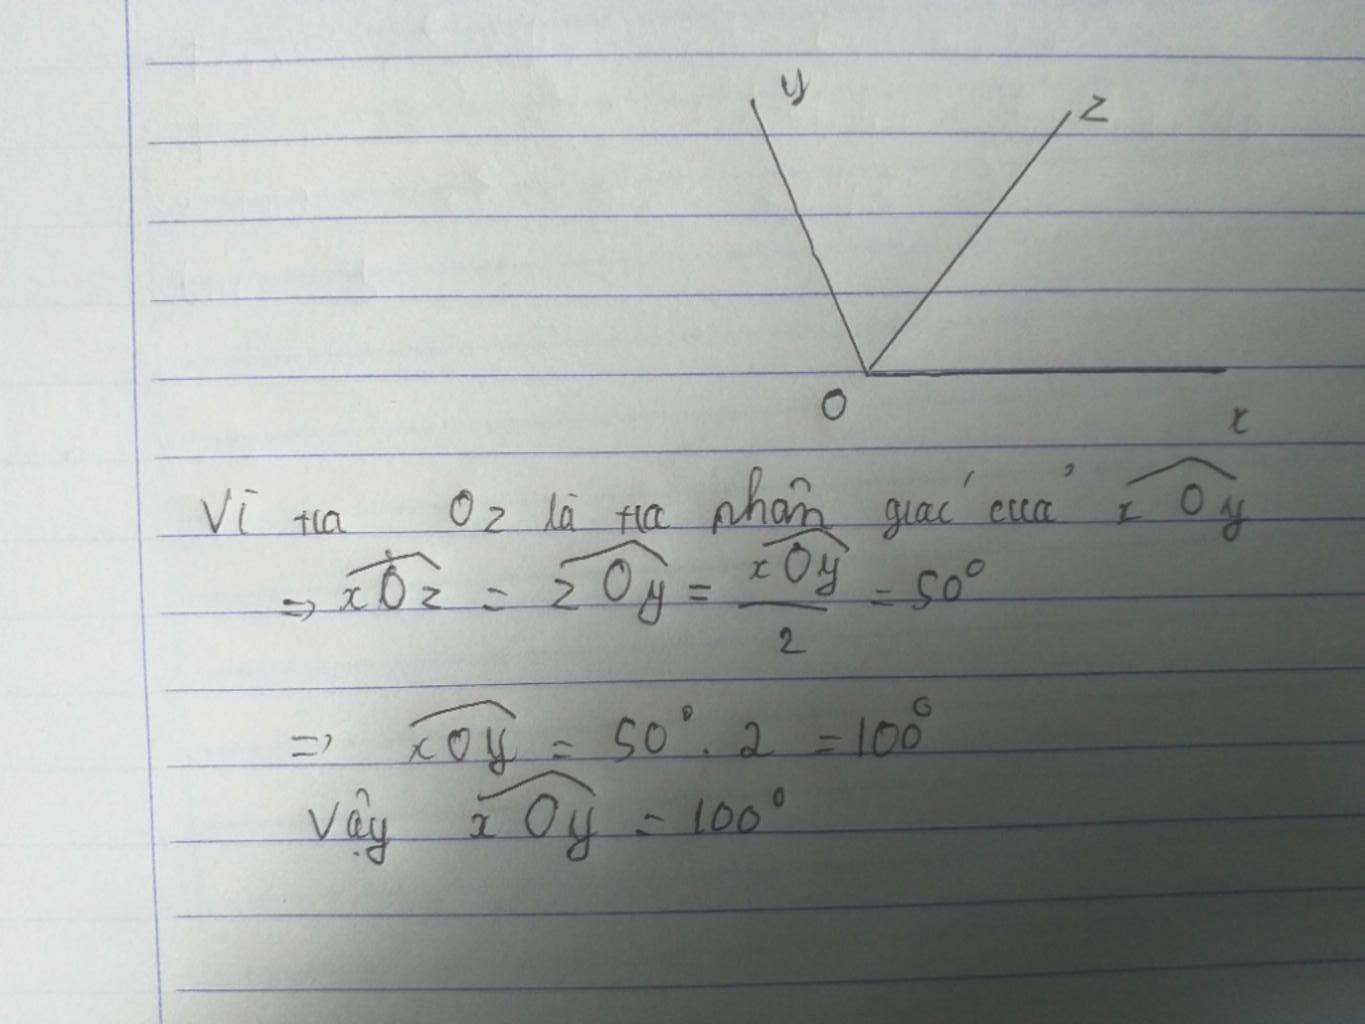 y
z
O
x
Vì tia Oz là tia phân giác của xOy
=> xOz = zOy = xOy/2 = 50°
=> xOy = 50°. 2 = 100°
Vậy xOy = 100°